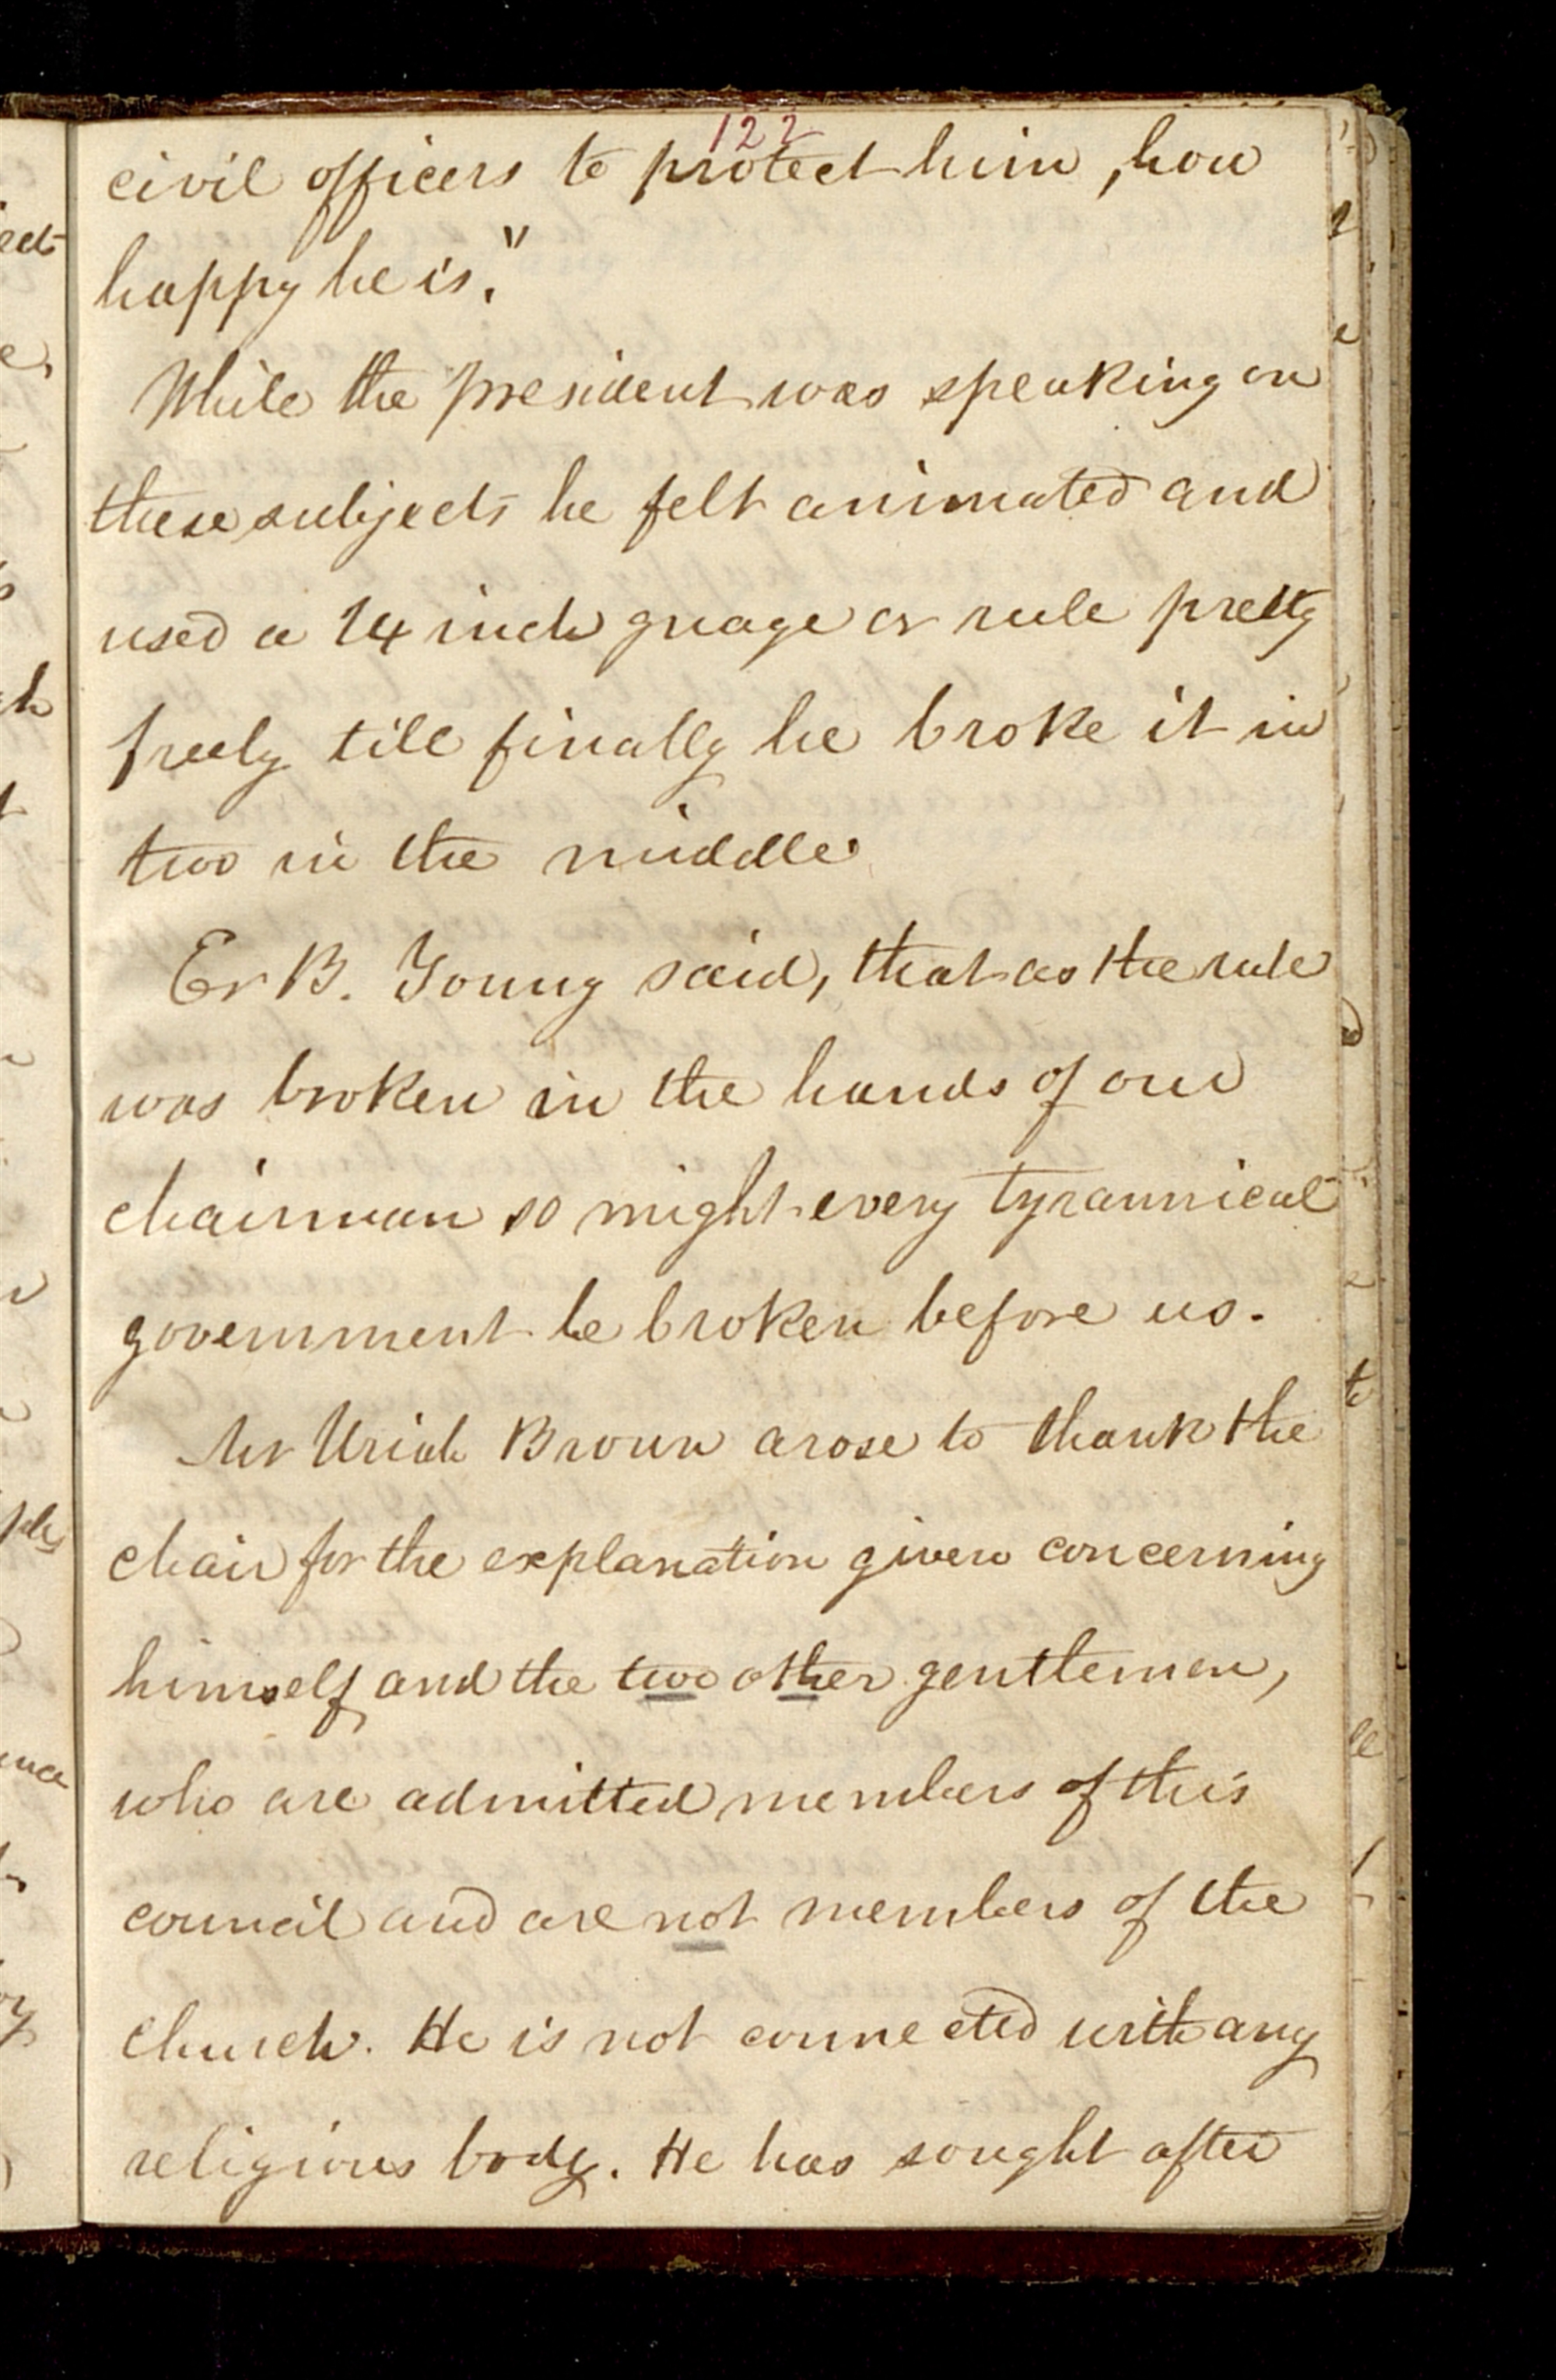 122
civil officers to protect him, how
happy he is."
While the president was speaking on
these subjects he felt animated and
used a 24 inch guage or rule pretty
freely till finally he broke it in
two in the middle.
Er B. Young said, that as the rule
was broken in the hands of our
chairman so might every tyrannical
government be broken before us.
Mr Uriah Brown arose to thank the
chair for the explanation given concerning
himself and the two other gentlemen,
who are admitted members of this
council and are not members of the
church. He is not connected with any
religious body. He has sought after